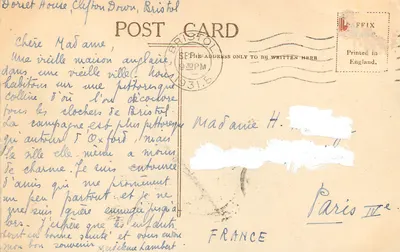 Dorset House, Clifton Down, Bristol
POST CARD
Chère Madame,
Une vieille maison anglaise,
dans une vieille ville! Nous
habitons sur une pittoresque
colline, d'où l'on découvre
tous les clochers de Bristol
La campagne est plus pittoresque
qu'autour d'Oxford, mais
la ville elle même a moins
de charme. Je suis entourée
d'amis qui me promènent
un peu partout, et je ne
me suis guère ennuyée jusqu'à
lors. J'espère que les enfants
sont en bonne santé et vous envoie
mon bon souvenir. Madeleine Lambert
BRISTOL
SEP
PM
1931
THE ADDRESS ONLY TO BE WRITTEN HERE
AFFIX
Printed in
England.
Madame H.
Paris IVe
FRANCE